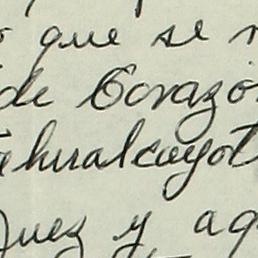 que se
de Corazó
ahualcoyot
quez y aq